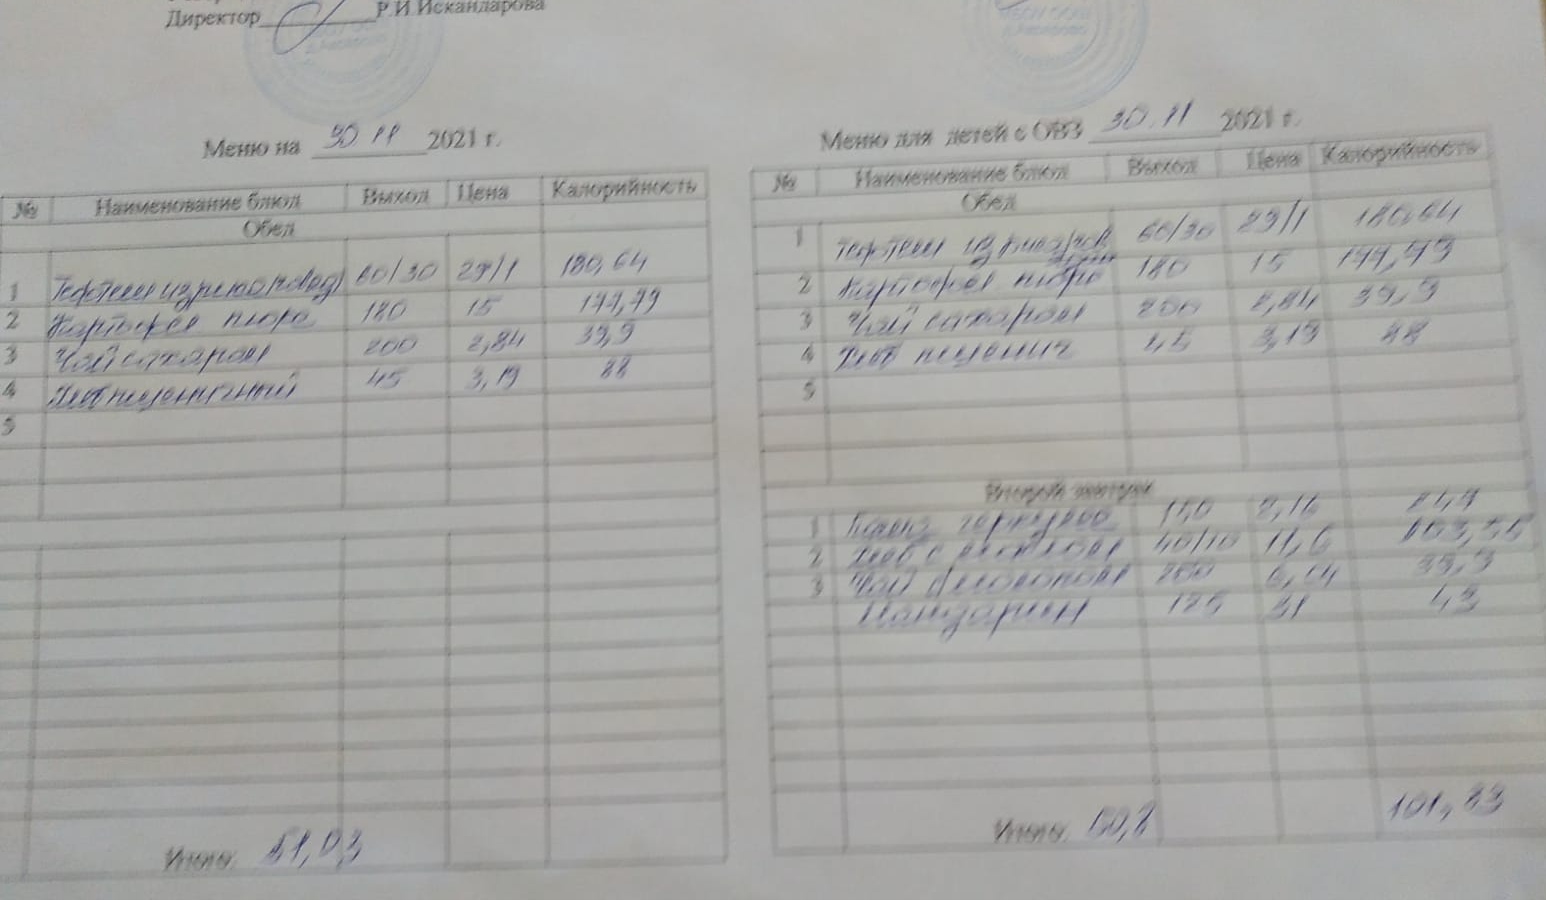 Директор Р.И.Искандарова
Меню на 30 11 2021 г.
№ Наименование блюд Выход Цена Калорийность
Обед
1 Тефтели из 60/30 29/1 180,64
2 Картофел пюре 180 15 177,79
3 Чай сахаром 200 2,84 39,9
4 Хлеб пшеничный 45 3,19 88
5
Итого: 51,03
Меню для детей с ОВЗ 30.11 2021 г.
№ Наименование блюд Выход Цена Калорийность
Обед
1 Тефтели из 60/30 29/1 180,64
2 Картофел пюре 180 15 177,79
3 Чай сахаром 200 2,84 39,9
4 Хлеб пшенич 45 3,19 88
5
Второй завтрак
1 247
2 Хлеб с маслом 40/10 11,6
3 Чай 200 39,9
Мандарин 125 31 43
Итого: 50,8 101,83